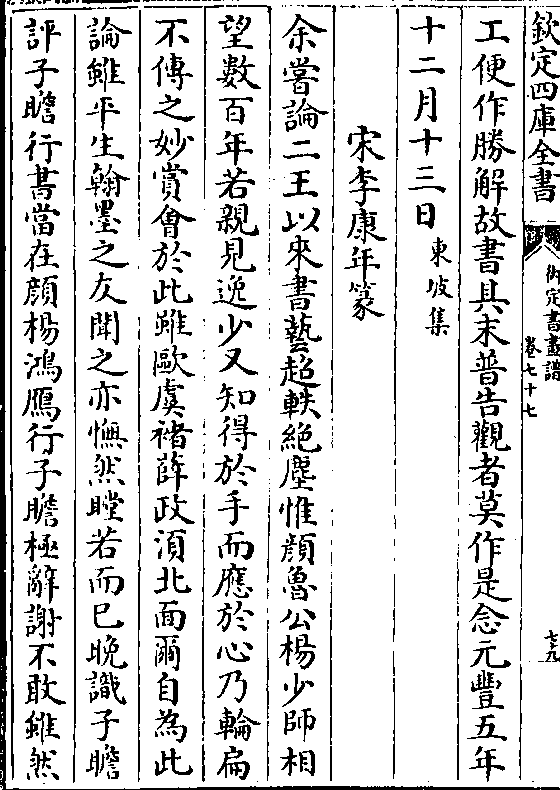 欽定四庫全書
御定書畫譜
卷七十七
七九
工便作勝解故書其末普告觀者莫作是念元豐五年
十二月十三日東坡集
宋李康年篆
余嘗論二王以來書藝超軼絕塵惟顔魯公楊少師相
望數百年若親見逸少又知得於手而應於心乃輪扁
不傳之妙賞會於此雖歐虞禇薛政湏北面爾自為此
論雖平生翰墨之友聞之亦憮然瞠若而已晚識子瞻
評子瞻行書當在顔楊鴻鴈行子瞻極辭謝不敢雖然